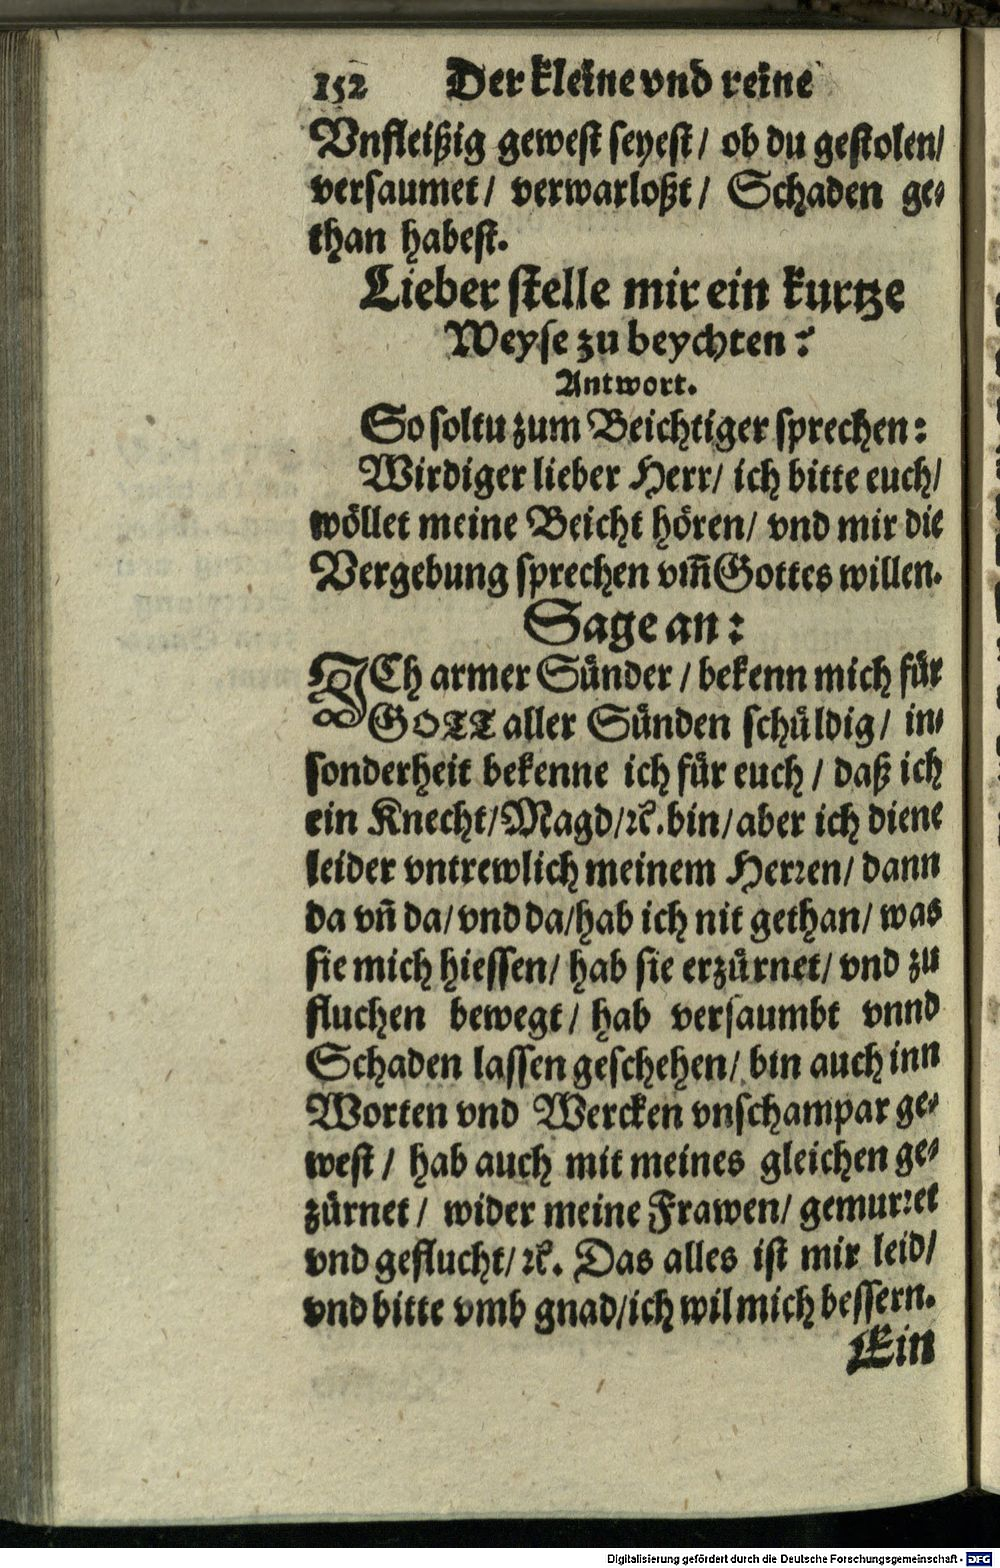 152 Der kleine vnd reine
Vnfleißig gewest seyest/ ob du gestolen/
versaumet/ verwarloßt/ Schaden ge-
than habest.
Lieber stelle mir ein kurtze
Weyse zu beychten?
Antwort.
So soltu zum Beichtiger sprechen:
Wirdiger lieber Herr/ ich bitte euch/
wöllet meine Beicht hören/ vnd mir die
Vergebung sprechen vm̃ Gottes willen.
Sage an:
ICh armer Sünder/ bekenn mich für
GOTT aller Sünden schüldig/ in-
sonderheit bekenne ich für euch/ daß ich
ein Knecht/ Magd/ ꝛc. bin/ aber ich diene
leider vntrewlich meinem Herꝛen/ dann
da vñ da/ vnd da/ hab ich nit gethan/ was
sie mich hiessen/ hab sie erzürnet/ vnd zu
fluchen bewegt/ hab versaumbt vnnd
Schaden lassen geschehen/ bin auch inn
Worten vnd Wercken vnschampar ge-
west/ hab auch mit meines gleichen ge-
zürnet/ wider meine Frawen/ gemurꝛet
vnd geflucht/ ꝛc. Das alles ist mir leid/
vnd bitte vmb gnad/ ich wil mich bessern.
Ein
Digitalisierung gefördert durch die Deutsche Forschungsgemeinschaft - DFG